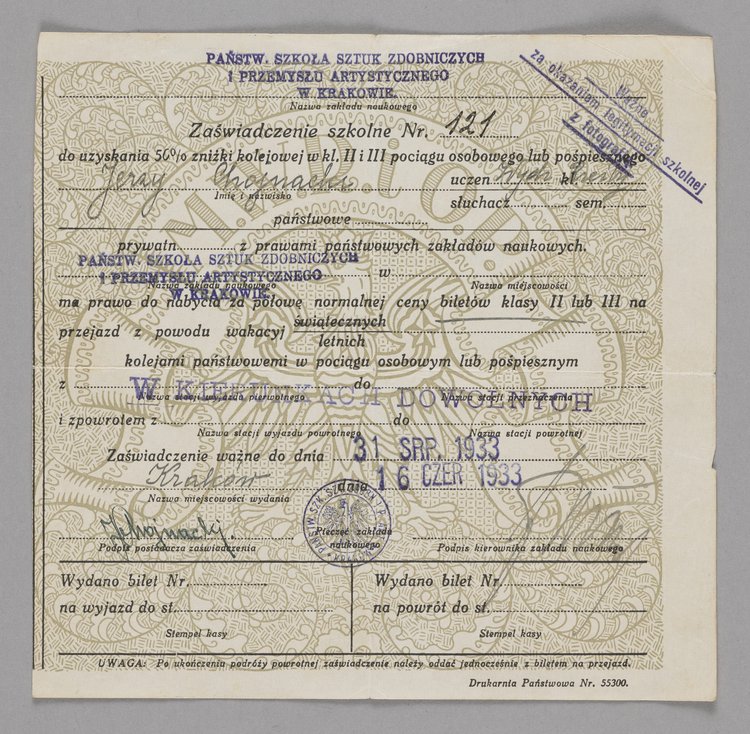 PAŃSTW. SZKOŁA SZTUK ZDOBNICZYCH
I PRZEMYSŁU ARTYSTYCZNEGO
W KRAKOWIE.
Nazwa zakładu naukowego
Ważne
za okazaniem legitymacji szkolnej
z fotografią
Zaświadczenie szkolne Nr. 121
do uzyskania 50% zniżki kolejowej w kl. II i III pociągu osobowego lub pośpiesznego
Jerzy Chojnacki uczeń kl.
Imię i nazwisko słuchacz sem.
państwowe
prywatn. z prawami państwowych zakładów naukowych.
PAŃSTW. SZKOŁA SZTUK ZDOBNICZYCH
I PRZEMYSŁU ARTYSTYCZNEGO w
Nazwa zakładu naukowego Nazwa miejscowości
W KRAKOWIE.
ma prawo do nabycia za połowę normalnej ceny biletów klasy II lub III na
przejazd z powodu wakacyj świątecznych
letnich
kolejami państwowemi w pociągu osobowym lub pośpiesznym
z do
W KIERUNKACH DOWOLNYCH
Nazwa stacji wyjazdu pierwotnego Nazwa stacji przeznaczenia
i zpowrotem z do
Nazwa stacji wyjazdu powrotnego Nazwa stacji powrotnej
Zaświadczenie ważne do dnia 31 SRP. 1933
Kraków dnia 16 CZER 1933
Nazwa miejscowości wydania
JChojnacki.
Podpis posiadacza zaświadczenia
Pieczęć zakładu
naukowego
Podpis kierownika zakładu naukowego
Wydano bilet Nr.
na wyjazd do st.
Stempel kasy
Wydano bilet Nr.
na powrót do st.
Stempel kasy
UWAGA: Po ukończeniu podróży powrotnej zaświadczenie należy oddać jednocześnie z biletem na przejazd.
Drukarnia Państwowa Nr. 55300.